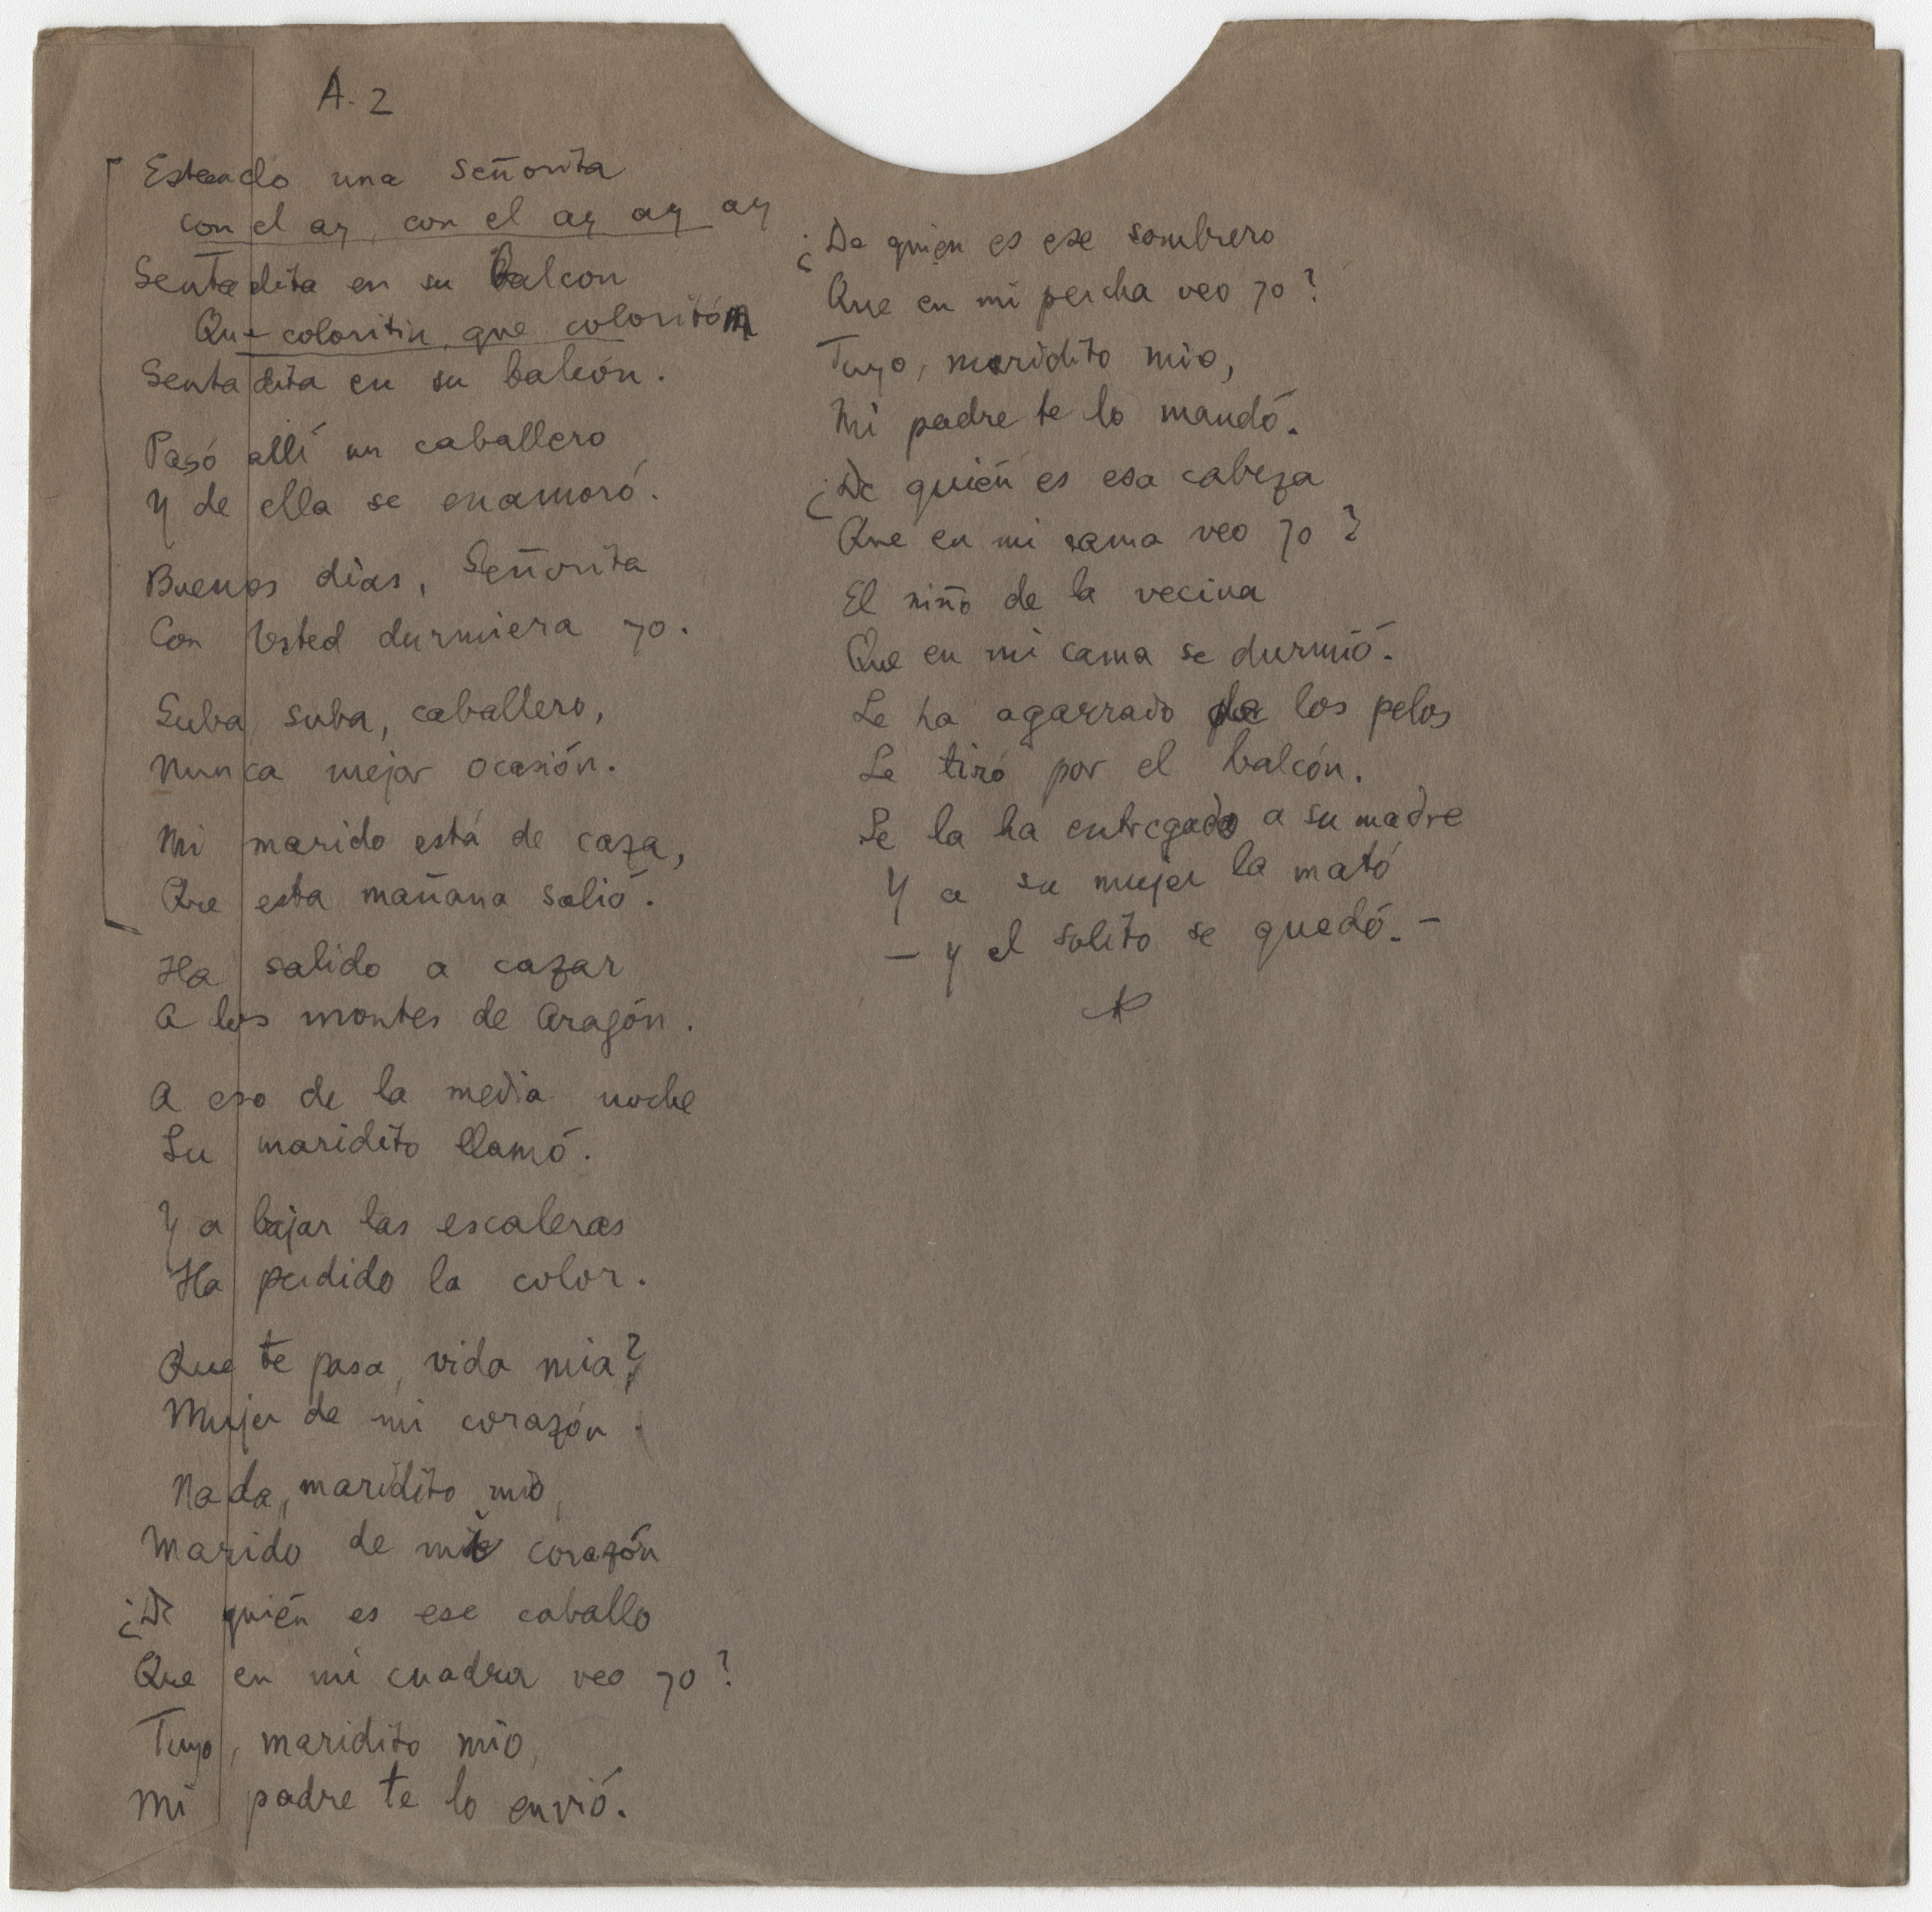 A. 2
Estando una Señorita
con el ay, con el ay ay ay
Sentadita en su balcon
Que coloritin, que coloritón
Sentadita en su balcón.
Pasó allí un caballero
Y de ella se enamoró.
Buenos días, Señorita
Con Usted durmiera yo.
Suba suba, caballero,
Nunca mejor ocasión.
Mi marido está de caza,
Que esta mañana salió.
Ha salido a cazar
A los montes de Aragón.
A eso de la media noche
Su maridito llamó.
Y a bajar las escaleras
Ha perdido la color.
Que te pasa, vida mia?
Mujer de mi corazón.
Nada, maridito mio,
Marido de mi corazón
¿De quién es ese caballo
Que en mi cuadra veo yo?
Tuyo, maridito mío,
Mi padre te lo envió.
¿De quien es ese sombrero
Que en mi percha veo yo?
Tuyo, maridito mio,
Mi padre te lo mandó.
¿De quién es esa cabeza
Que en mi cama veo yo?
El niño de la vecina
Que en mi cama se durmió.
Le ha agarrado de los pelos
Le tiró por el balcón.
Se la ha entregado a su madre
Y a su mujer la mató
- Y el solito se quedó. -